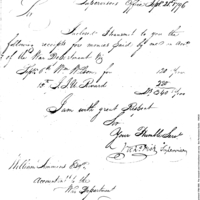 Supervisors Office Sept 22d 1796
Sir
Inclosed I transmit to you the
following receipts for monies paid by me on Acct
of the War Department Viz
Sept 6th Wm Wilson for 120 Dollrs
220
D. 340
I am with great Respect
Sir
Your Humble Servt
Supervisor
William Simmons Esqr
Accountant to the
War Department